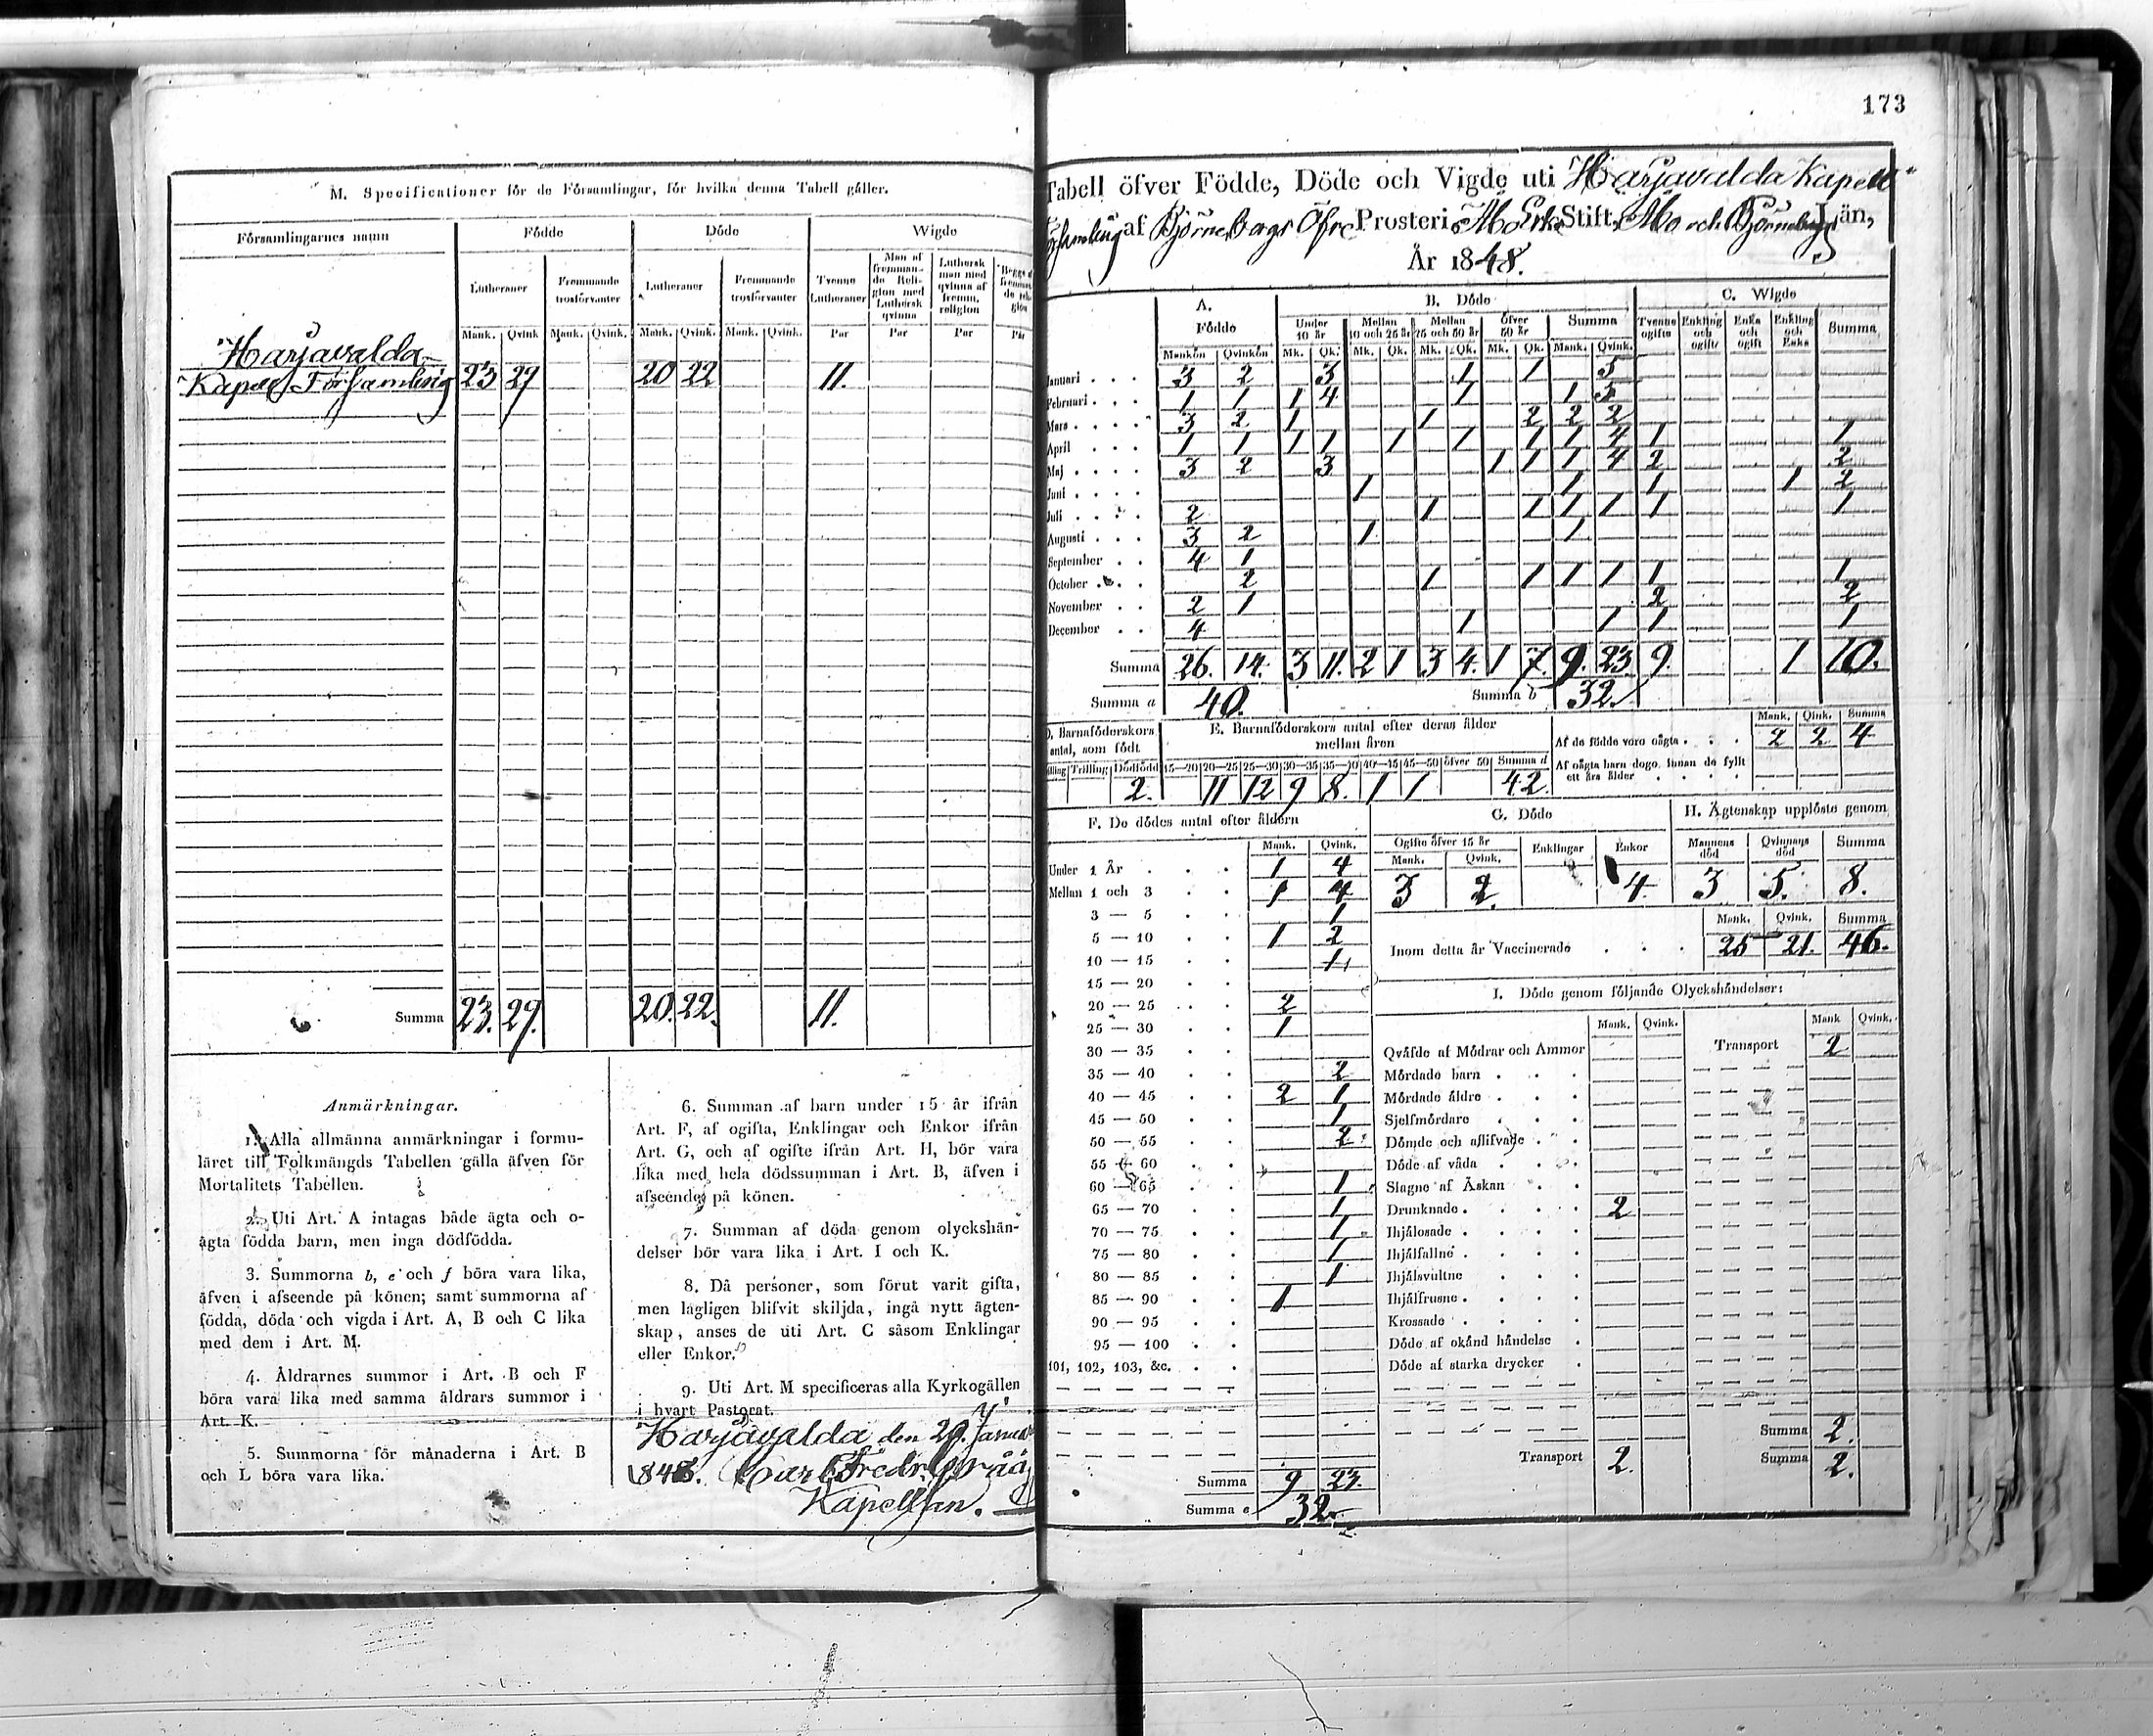 M. Specificationer för de Församlingar, för hvilka denna Tabell gäller.
Församlingarnes namn Födde Döde Wigde
Lutheraner Fremmande trosförvanter Lutheraner Fremmande trosförvanter Tvenne Lutheraner Man af fremmande Religion med Luthersk qvinna Luthersk man med qvinna af fremm. religion
Mank. Qvink Mank. Qvink. Mank. Qvink. Mank. Qvink. Par Par Par Par
Harjavalda
Kapell Församling 23 29 20 22 11.
Summa 23. 29. 20. 22. 11.
Anmärkningar.
1. Alla allmänna anmärkningar i formu-
läret till Folkmängds Tabellen gälla äfven för
Mortalitets Tabellen.
2. Uti Art. A intagas både ägta och o-
ägta födda barn, men inga dödfödda.
3. Summorna b, e och f böra vara lika,
äfven i afseende på könen; samt summorna af
födda, döda och vigda i Art. A, B och C lika
med dem i Art. M.
4. Åldrarnes summor i Art. B och F
böra vara lika med samma åldrars summor i
Art. K.
5. Summorna för månaderna i Art. B
och L böra vara lika.
6. Summan af barn under 15 år ifrån
Art. F, af ogifta, Enklingar och Enkor ifrån
Art. G, och af ogifte ifrån Art. H, bör vara
lika med hela dödssumman i Art. B, äfven i
afseende på könen.
7. Summan af döda genom olyckshän-
delser bör vara lika i Art. I och K.
8. Då personer, som förut varit gifta,
men lagligen blifvit skiljda, ingå nytt ägten-
skap, anses de uti Art. C såsom Enklingar
eller Enkor.
9. Uti Art. M specificeras alla Kyrkogällen
i hvart Pastorat.
Harjavalda den
Kapellan.
173
Tabell öfver Födde, Döde och Vigde uti Harjavalda Kapell
Församling af Björneborgs Öfre Prosteri, Åbo Erke Stift, Åbo och Björneborgs Län,
År 1848.
A. B. Döde C. Wigde
Födde Under 10 år Mellan 10 och 25 år Mellan 25 och 50 år Öfver 50 år Summa Tvenne ogifte Enkling och ogift Enka och ogift Enkling och Enka Summa
Mankön Qvinkön Mk. Qk. Mk. Qk. Mk. Qk. Mk. Qk. Mank. Qvink.
Januari . . . 3 2 3 1 1 5
Februari . . . 1 1 1 4 1 1 5
Mars . . . . 3 2 1 1 2 2 2
April . . . 1 1 1 1 1 1 1 1 4 1 1
Maj . . . . 3 2 3 1 1 1 4 2 2
Juni . . . . 1 1 1 1 2
Juli . . . . 2 1 1 1 1 1 1
Augusti . . . 3 2 1 1
September . . 4 1
October . . . 2 1 1 1 1 1 1
November . . 2 1 2 2
December . . 4 1 1 1 1
Summa 26. 14. 3 11. 2 1 3 4. 1 7. 9. 23 9. 1 10.
Summa a 40. Summa b 32.
D. Barnaföderskors antal, som födt E. Barnaföderskors antal efter deras ålder mellan åren Mank. Qink. Summa
Af de födde voro oägta . . . 2 2 4
Af oägta barn dogo, innan de fyllt
ett års ålder . . . .
Trilling Dödfödd 15—20 20—25 25—30 30—35 35—40 40—45 45—50 öfver 50 Summa d
2. 11 12 9 8. 1 1 42
F. De dödes antal efter åldern
Mank. Qvink.
Under 1 År . . . 1 4
Mellan 1 och 3 . . 1 4
3 — 5 . . 1
5 — 10 . . 1 2
10 — 15 . . 1
15 — 20 . .
20 — 25 . . 2
25 — 30 . . 1
30 — 35 . .
35 — 40 . . 2
40 — 45 . . 2 1
45 — 50 . . 1
50 — 55 . . 2
55 — 60 . .
60 — 65 . . 1
65 — 70 . . 1
70 — 75 . . 1
75 — 80 . . 1
80 — 85 . . 1
85 — 90 . . 1
90 — 95 . .
95 — 100 . .
101, 102, 103, &c. . .
Summa 9 23.
Summa e 32.
G. Döde H. Ägtenskap upplöste genom
Ogifte öfver 15 år Enklingar Enkor Mannens död Qvinnans död Summa
Mank. Qvink.
3 2. 4. 3 5. 8.
Mank. Qvink. Summa
Inom detta år Vaccinerade . . . 25 21. 46.
I. Döde genom följande Olyckshändelser:
Mank. Qvink. Mank Qvink.
Qväfde af Mödrar och Ammor Transport 2
Mördade barn . . .
Mördade äldre . . .
Sjelfmördare . .
Dömde och aflifvade . .
Döde af våda . . .
Slagne af Åskan . .
Drunknade . . . . 2
Ihjälosade . . . .
Ihjälfallne . . . .
Ihjälsvultne . . .
Ihjälfrusne . . . .
Krossade . . . .
Döde af okänd händelse .
Döde af starka drycker .
Summa 2.
Transport 2. Summa 2.